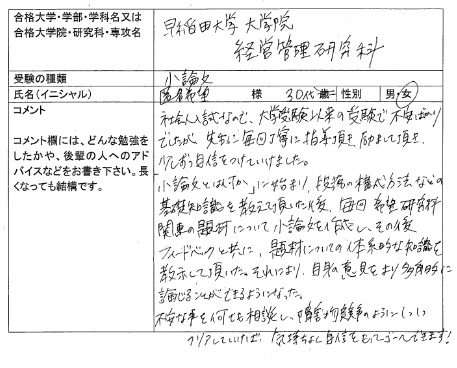 合格大学・学部・学科名又は
合格大学院・研究科・専攻名
早稲田大学 大学院
経営管理研究科
受験の種類
小論文
氏名(イニシャル)
匿名希望 様 30代 歳 性別 男・女
コメント
コメント欄には、どんな勉強を
したかや、後輩の人へのアド
バイスなどをお書き下さい。長
くなっても結構です。
社会人入試なので、大学受験以来の受験で不安ばかり
でしたが、先生に毎回丁寧に指導頂き、励まして頂き、
少しずつ自信をつけていけました。
小論文とは何か、に始まり、段落の構成方法などの
基礎知識を教えて頂いた後、毎回希望研究科
関連の題材について小論文を作成し、その後
フィードバックと共に、題材についての体系的な知識を
教示して頂いた。それにより、自身の意見をより多角的に
論じることができるようになった。
不安な事を何でも相談し、障害物競争のように1つ1つ
クリアしていけば、気持ちよく自信をもってゴールできます!